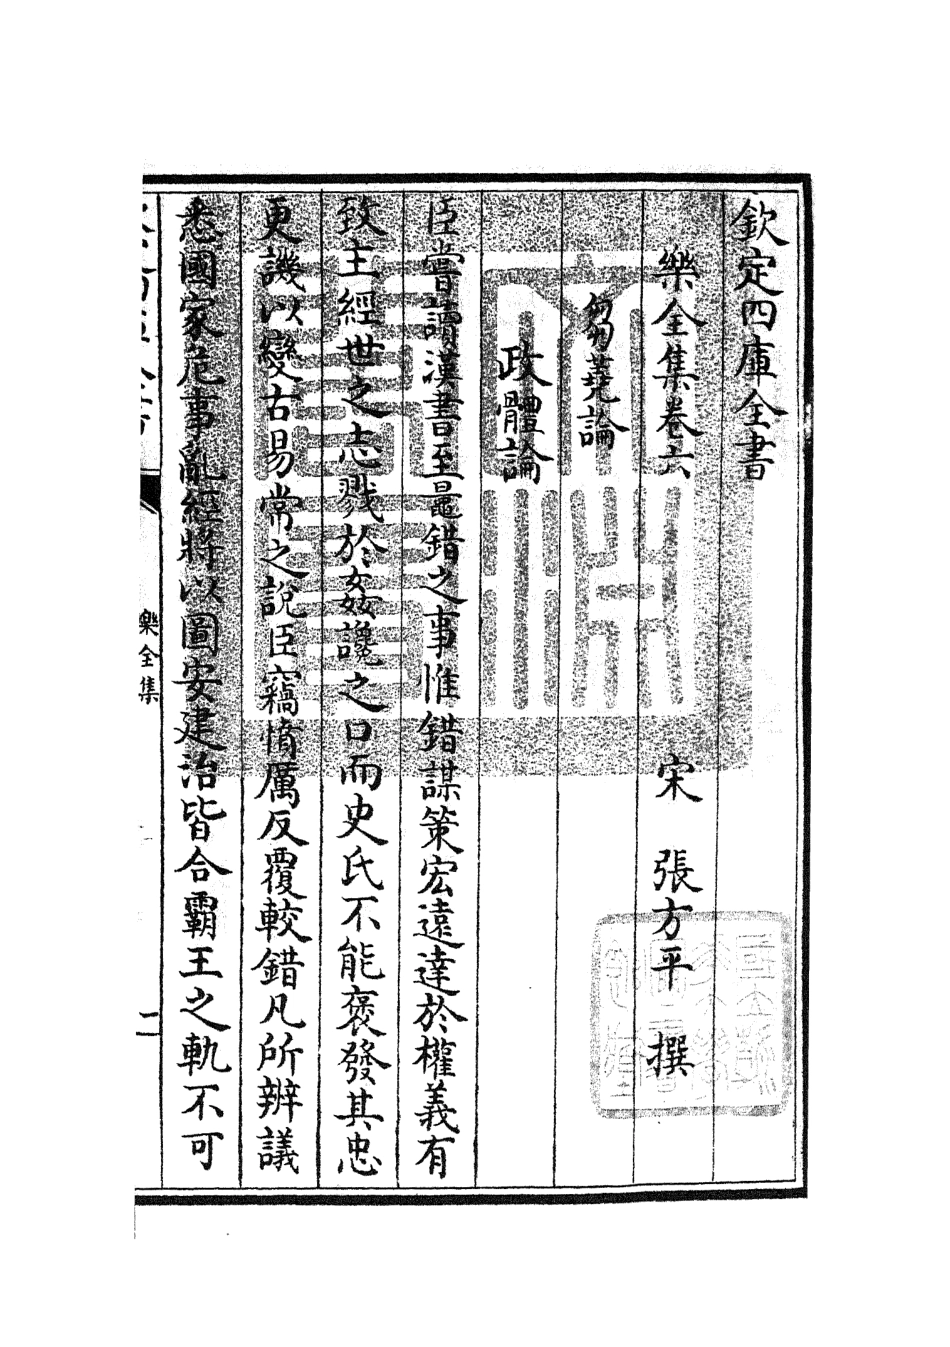 欽定四庫全書
樂全集卷六
宋 張方平 撰
芻蕘論
政體論
臣嘗讀漢書至鼂錯之事惟錯謀策宏遠達於權義有
致主經世之志戮於姦讒之口而史氏不能褒發其忠
更譏以變古易常之說臣竊憤厲反覆較錯凡所辨議
悉國家危事亂經將以圖安建治皆合霸王之軌不可
樂全集